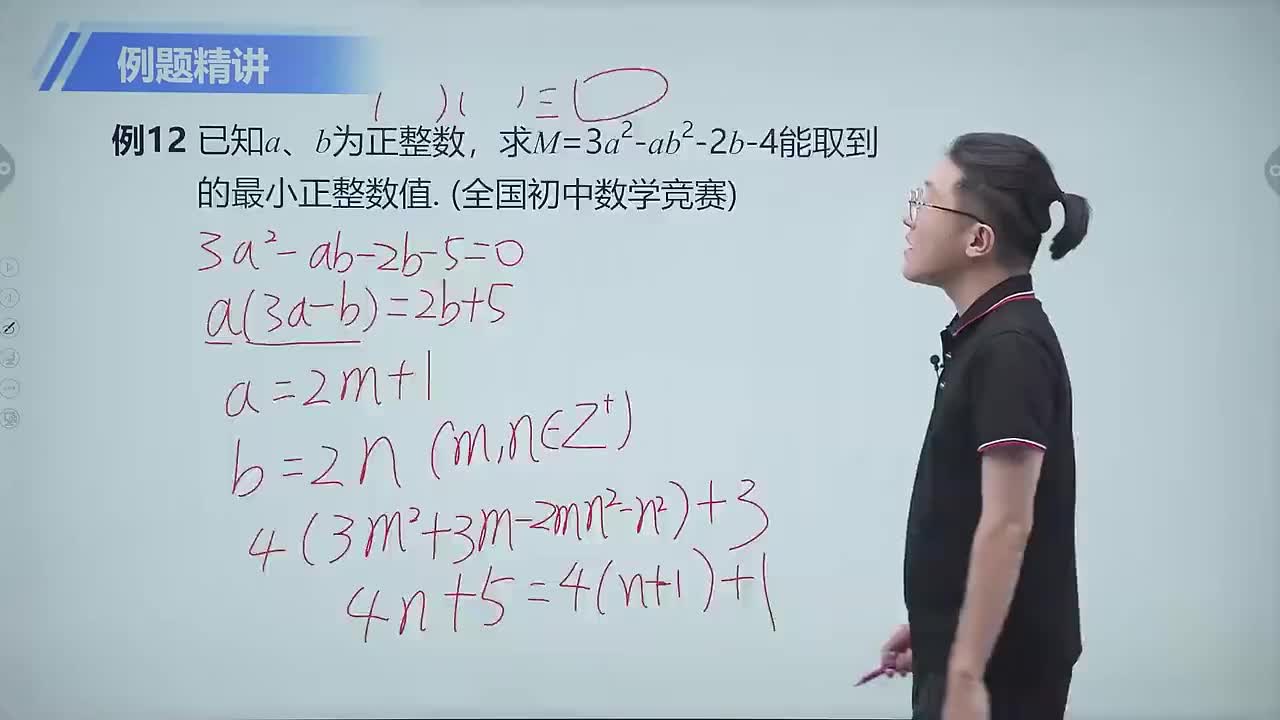 例题精讲
( )( )≡
例12 已知a、b为正整数，求M=3a²-ab²-2b-4能取到
的最小正整数值. (全国初中数学竞赛)
3a²-ab-2b-5=0
a(3a-b)=2b+5
a=2m+1
b=2n (m,n∈Z⁺)
4(3m²+3m-2mn²-n²)+3
4n+5=4(n+1)+1